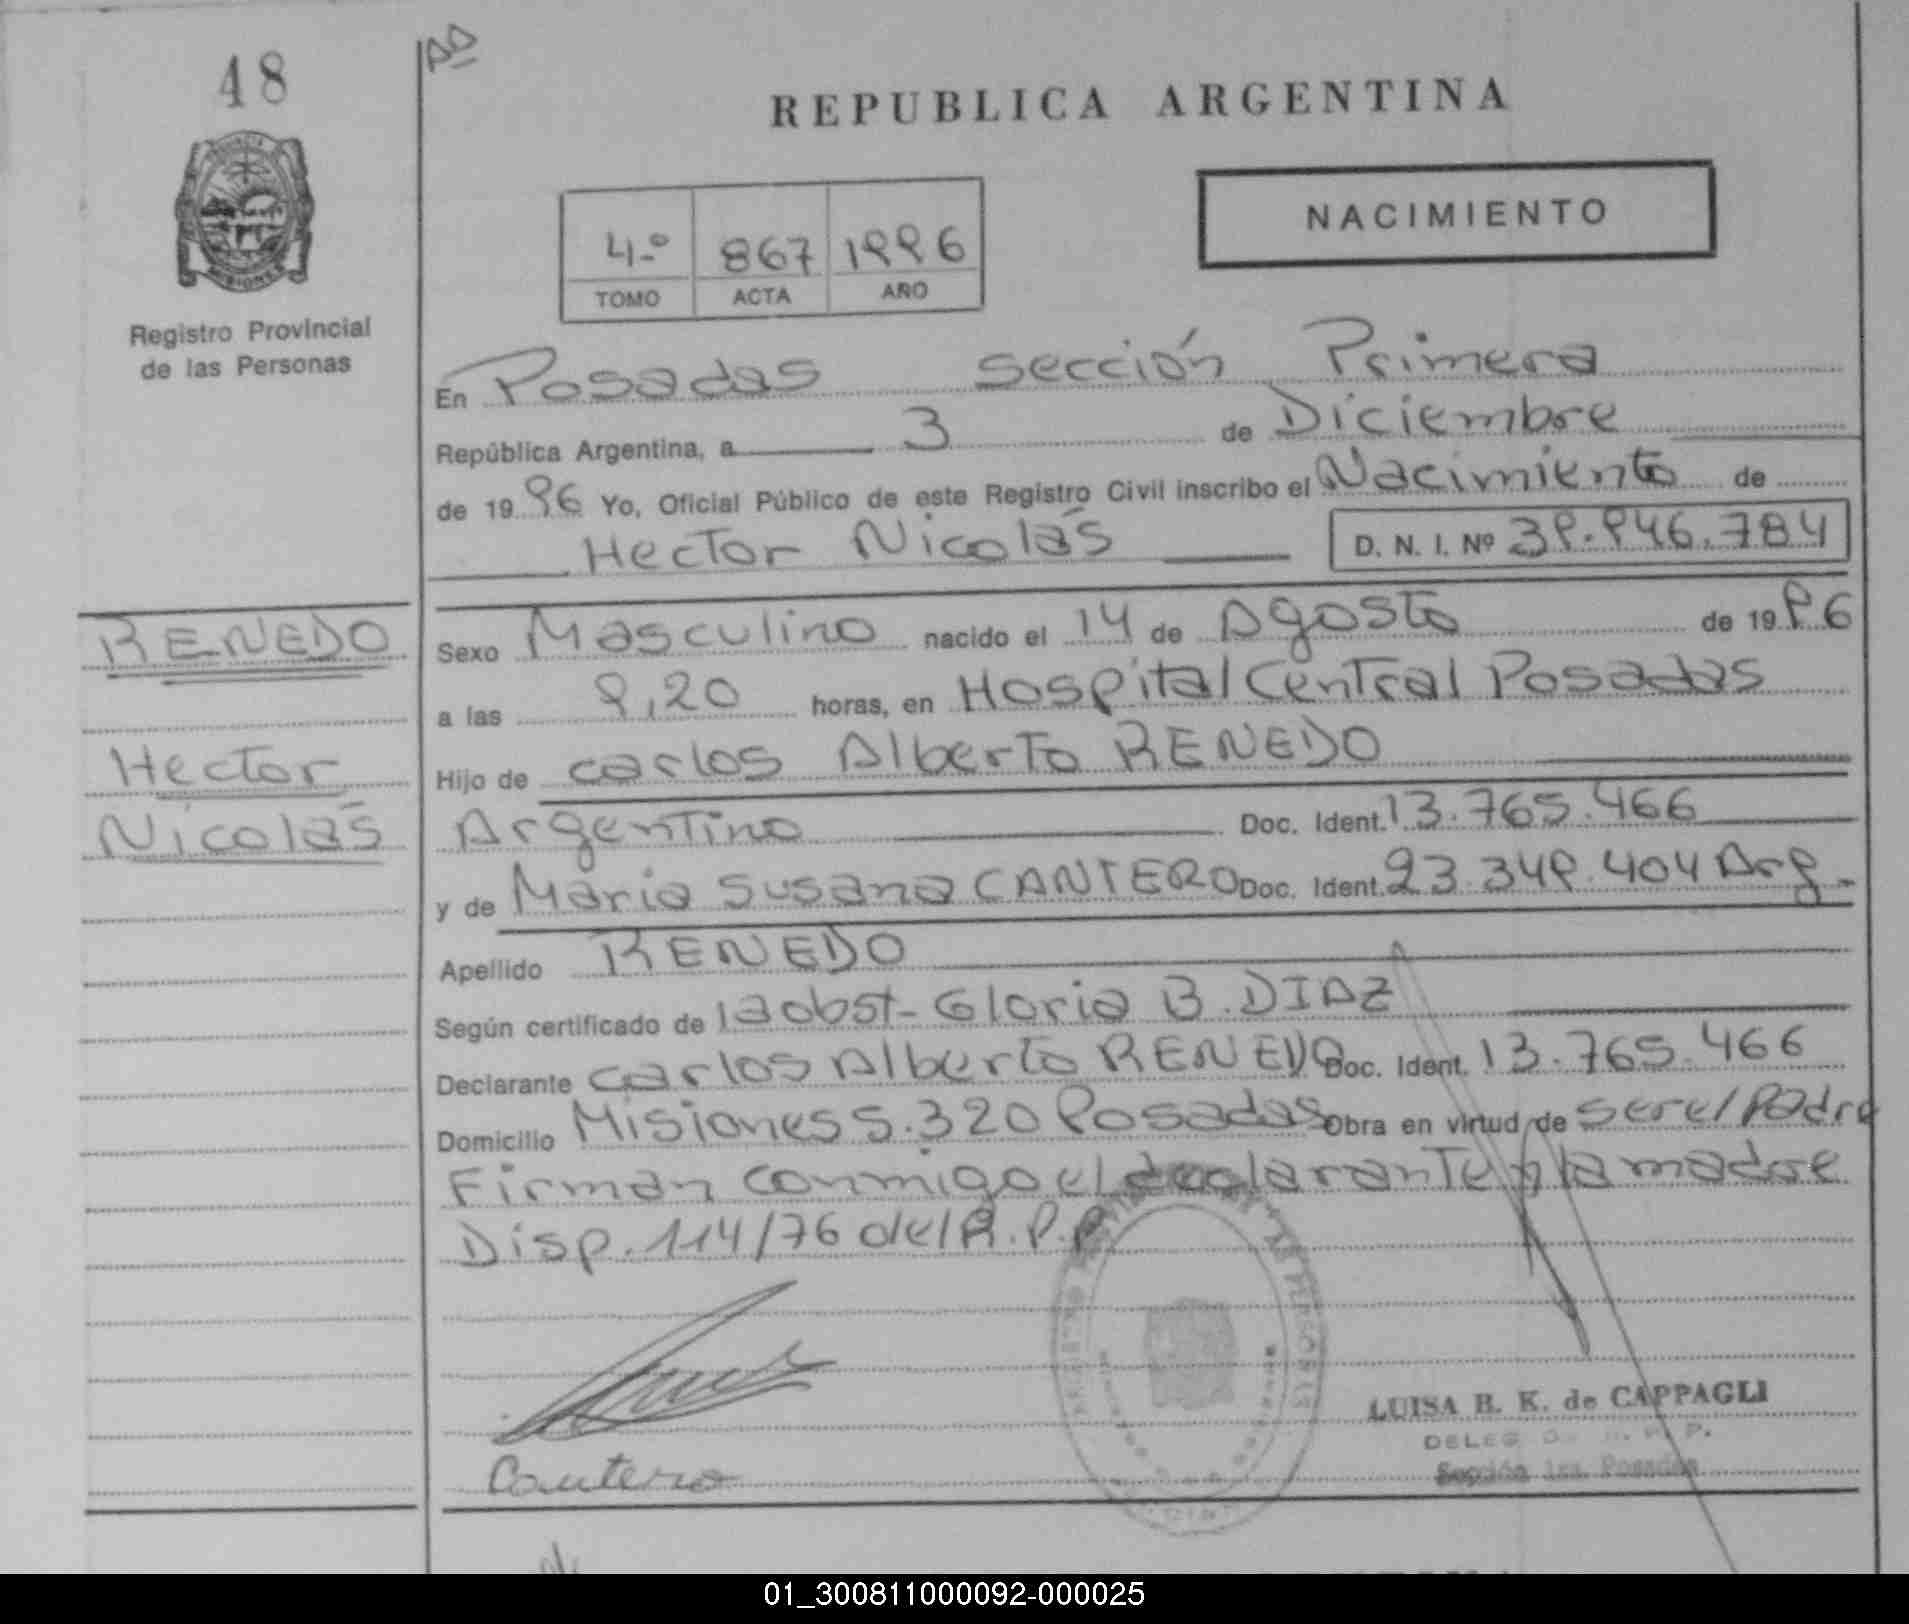 48
AD
REPUBLICA ARGENTINA
NACIMIENTO
4.º 867 1996
TOMO ACTA AÑO
Registro Provincial
de las Personas
En Posadas sección Primera
República Argentina, a 3 de Diciembre
de 1996 Yo, Oficial Público de este Registro Civil inscribo el Nacimiento de
Hector Nicolás D. N. I. Nº 39.946.784
RENEDO
Hector
Nicolás
Sexo Masculino nacido el 14 de Agosto de 1996
a las 9,20 horas, en Hospital Central Posadas
Hijo de Carlos Alberto RENEDO
Argentino Doc. Ident. 13.765.466
y de Maria Susana CANTERO Doc. Ident. 23.349.404 Arg.-
Apellido RENEDO
Según certificado de la obst- Gloria B. DIAZ
Declarante Carlos Alberto RENEDO Doc. Ident. 13.765.466
Domicilio Misiones S. 320 Posadas Obra en virtud de ser el Padre
Firman conmigo el declarante y la madre
Disp. 114/76 del R.P.P.
Cantero
LUISA B. K. de CAPPAGLI
Sección 1ra. Posadas
01_300811000092-000025